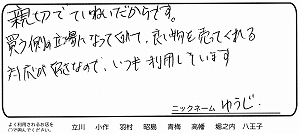 親切でていねいだからです。
買う側の立場になってくれて、良い物を売ってくれる
対応が好きなので、いつも利用しています
ニックネーム ゆうじ.
よく利用されるお店を
○で囲んでください。 立川 小作 羽村 昭島 青梅 高幡 堀之内 八王子